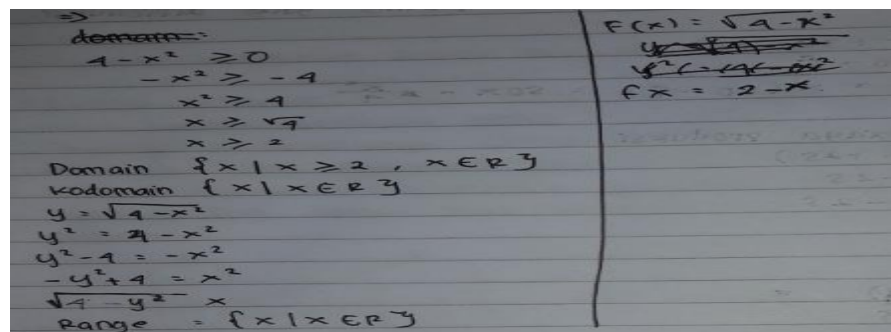 =>
domain:
4 - x² ≥ 0
- x² ≥ - 4
x² ≥ 4
x ≥ √4
x ≥ 2
Domain {x | x ≥ 2, x ∈ R}
Kodomain {x | x ∈ R}
y = √4 - x²
y² = 4 - x²
y² - 4 = - x²
- y² + 4 = x²
√4 - y² x
Range = {x | x ∈ R}
F(x) = √4 - x²
Fx = 2 - x